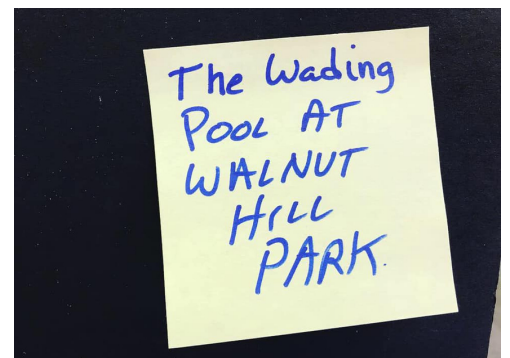 The Wading
POOL AT
WALNUT
HILL
PARK.